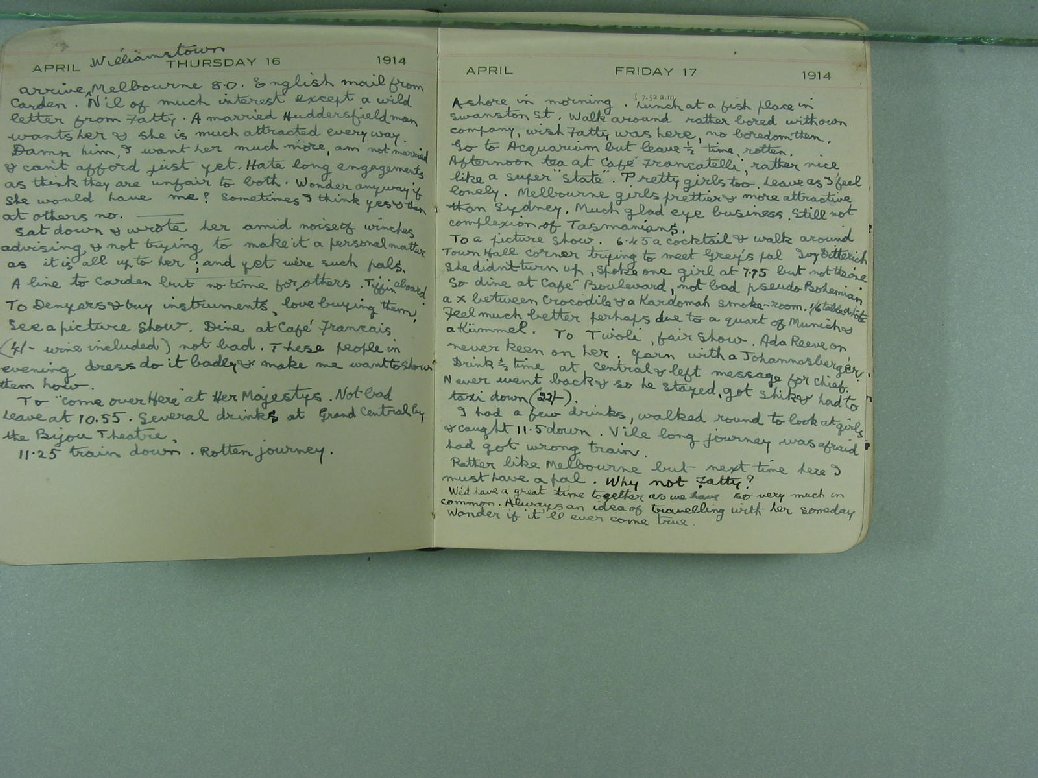 Williamstown
APRIL THURSDAY 16 1914
arrive Melbourne 8.0. English mail from
Carden. Nil of much interest except a wild
letter from Fatty. A married Huddersfield man
wants her & she is much attracted every way.
Damn him, I want her much more, am not married
& can't afford just yet. Hate long engagements
as think they are unfair to both. Wonder anyway if
she would have me? Sometimes I think yes & then
at others no.
Sat down & wrote her amid noise of winches
advising, & not trying to make it a personal matter
as it is all up to her; and yet we're such pals.
A line to Carden but no time for others. Tiffin aboard.
To Denyers & buy instruments, love buying them,
See a picture show. Dine at Café Francais
(4/- wine included) not bad. These people in
evening dress do it badly & make me want to show
them how.
To "Come over Here" at Her Majestys. Not bad
Leave at 10.55. Several drinks at Grand Central by
the Bijou Theatre.
11.25 train down. Rotten journey.
APRIL FRIDAY 17 1914
Ashore in morning. Lunch at a fish place in
Swanston St. Walk around rather bored with own
company, wish Fatty was here, no boredom then.
Go to Acquarium but leave; time rotten.
Afternoon tea at Café Francatelli, rather nice
like a super "State". Pretty girls too. Leave as I feel
lonely. Melbourne girls prettier & more attractive
than Sydney. Much glad eye business. Still not
complexion of Tasmanians.
To a picture show. 6.45 a cocktail & walk around
Town Hall corner trying to meet Grey's pal Joy
She didn't turn up, spoke one girl at 7.25 but not the one
So dine at Café Boulevard, not bad pseudo Bohemian
a x between Crocodile & a Kardomah smoke-room.
Feel much better perhaps due to a quart of Munich &
a Kümmel. To Tivoli, fair show. Ada Reeve on
never keen on her. Yarn with a Johannesberger.
Drink & time at Central & left message for chief.
Never went back & so he stayed, got shikr & had to
taxi down (22/-).
I had a few drinks, walked round to look at girls
& caught 11.5 down. Vile long journey was afraid
had got wrong train.
Rather like Melbourne but next time here I
must have a pal. Why not Fatty?
We'd have a great time together as we have so very much in
common. Always an idea of travelling with her someday
Wonder if it'll ever come true.